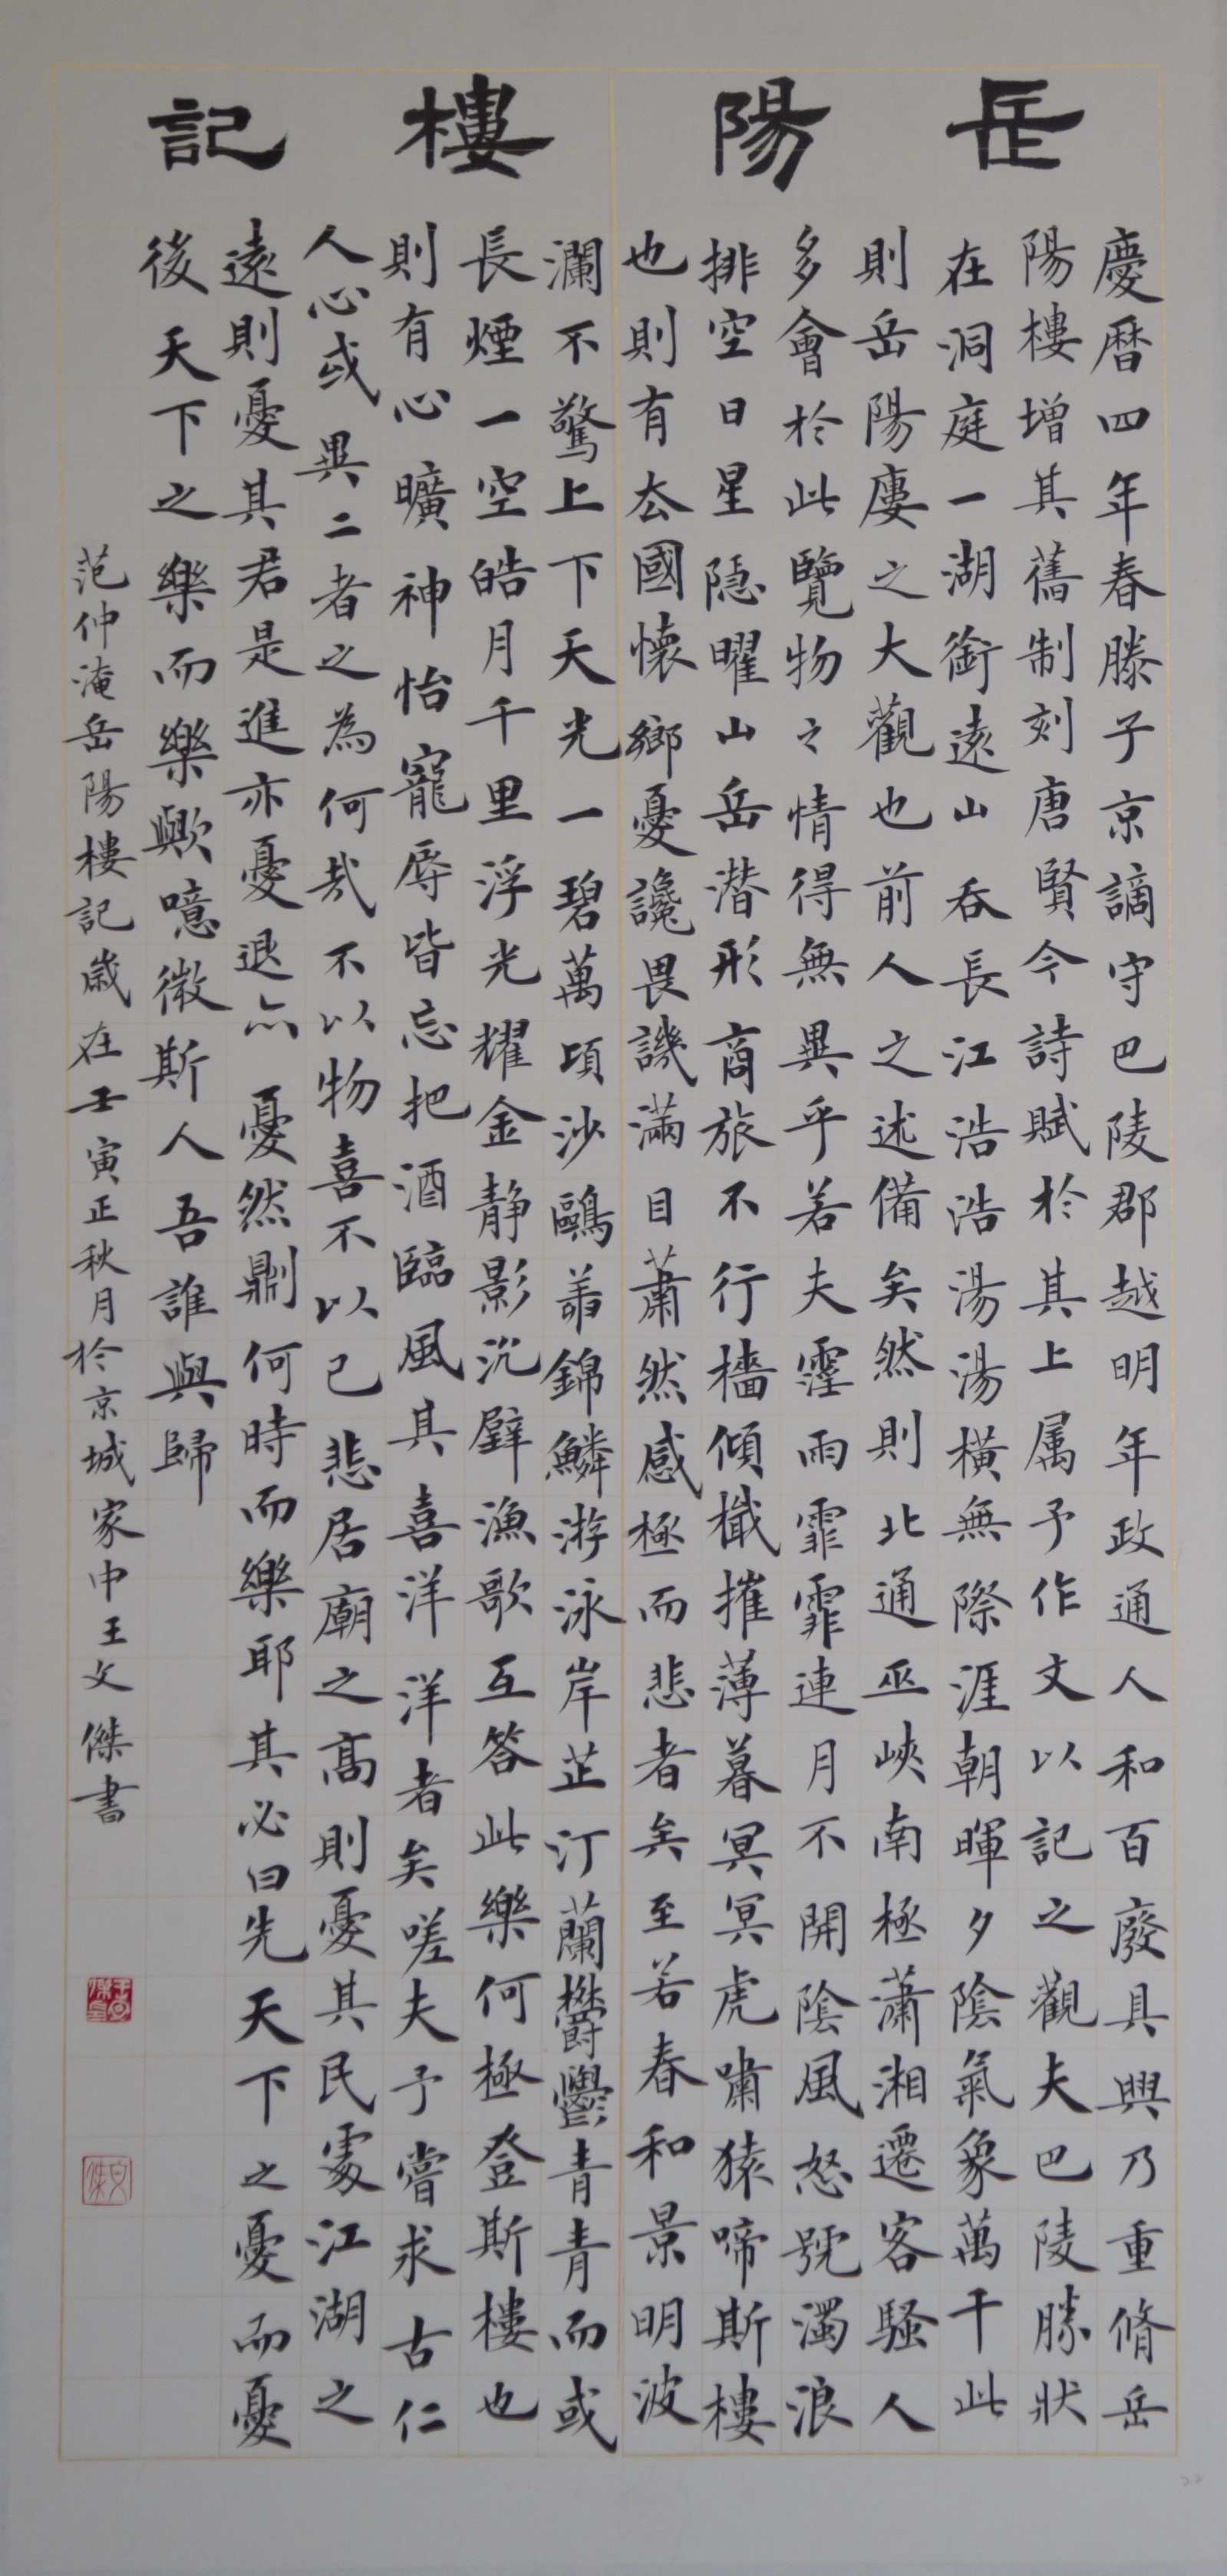 岳陽樓記
慶曆四年春滕子京謫守巴陵郡越明年政通人和百廢具興乃重脩岳
陽樓增其舊制刻唐賢今詩賦於其上属予作文以記之觀夫巴陵勝狀
在洞庭一湖銜遠山吞長江浩浩湯湯橫無際涯朝暉夕陰氣象萬千此
則岳陽廔之大觀也前人之述備矣然則北通巫峽南極瀟湘遷客騷人
多會於此覽物之情得無異乎若夫霪雨霏霏連月不開陰風怒號濁浪
排空日星隱曜山岳潛形商旅不行檣傾檝摧薄暮冥冥虎嘯猿啼斯樓
也則有去國懷鄉憂讒畏譏滿目蕭然感極而悲者矣至若春和景明波
瀾不驚上下天光一碧萬頃沙鷗翔錦鱗游泳岸芷汀蘭欝鬱青青而或
長煙一空皓月千里浮光耀金靜影沉璧漁歌互答此樂何極登斯樓也
則有心曠神怡寵辱皆忘把酒臨風其喜洋洋者矣嗟夫予嘗求古仁
人心或異二者之為何哉不以物喜不以己悲居廟之高則憂其民處江湖之
遠則憂其君是進亦憂退亦憂然則何時而樂耶其必曰先天下之憂而憂
後天下之樂而樂歟噫微斯人吾誰與歸
范仲淹岳陽樓記歲在壬寅正秋月於京城家中王文傑書